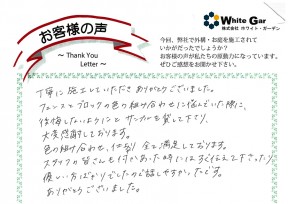 お客様の声
～ Thank You
Letter ～
White Gar
株式会社 ホワイト・ガーデン
今回、弊社で外構・お庭を施工されて
いかがだったでしょうか?
お客様の声が私たちの原動力になっています。
ぜひご感想をお聞かせ下さい。
丁寧に施工していただきありがとうございました。
フェンスとブロックの色の組み合わせに悩んでいた際に、
後悔しないようにと サンプルを貸して下さり、
大変感謝しております。
色の組み合わせ、仕上り 全て満足しております。
スタッフの皆さんも何かあった時にはすぐ伝えて下さったり
優しい方ばかりでしたので話しやすかったです。
ありがとうございました。